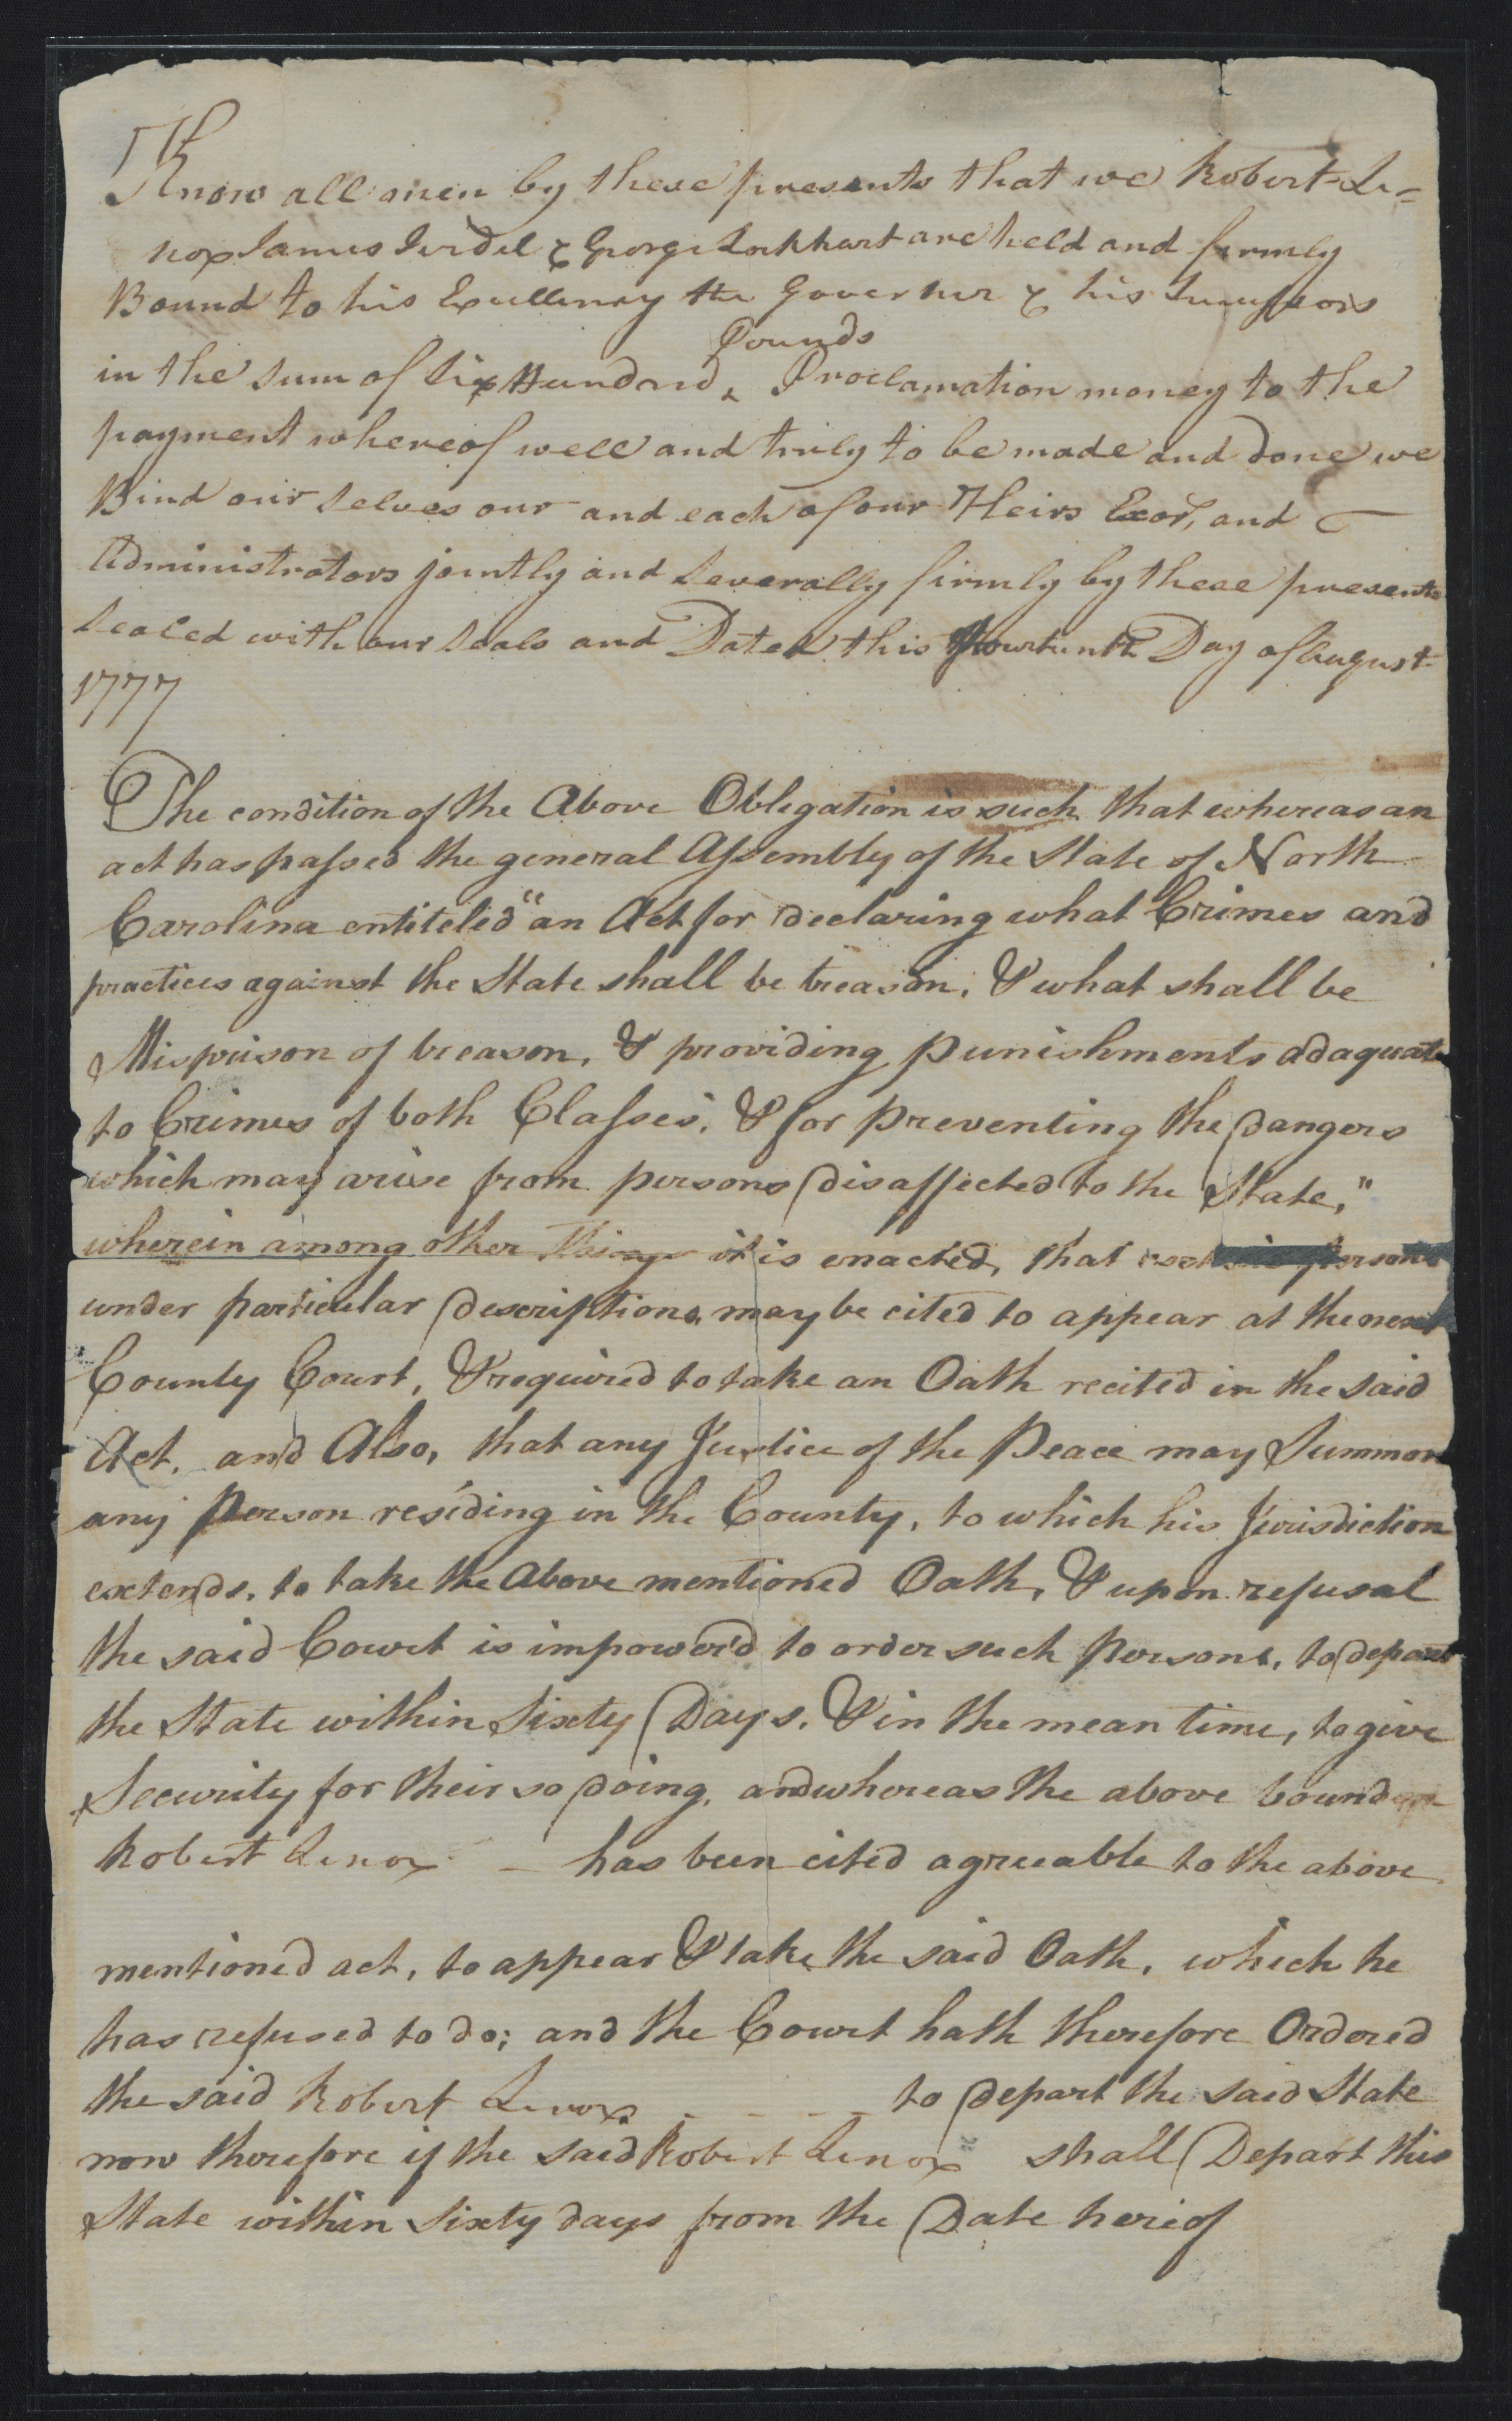 Know all men by these presents that we Robert Le=
nox James Iredel & George Lockhart are held and firmly
Bound to his Excellency the Governer & his Successors
Pounds
in the sum of Six Hundred ^ Proclamation money to the
payment whereof well and truly to be made and done we
Bind our selves our and each of our Heirs Exor, and
Administrators jointly and Severally firmly by these presents
Sealed with our Seals and Dated this fourtenth Day of August
1777
The condition of the Above Obligation is such that whereas an
act has passed the general Assembly of the State of North
Carolina entiteled "an Act for declaring what Crimes and
practices against the State shall be treason, & what shall be
Misprison of treason, & providing punishments adaquate
to Crimes of both Classes, & for preventing the dangers
which may arise from persons disaffected to the State,"
wherein among other things it is enacted, that persons
under particular descriptions, may be cited to appear at the next
County Court, & required to take an Oath recited in the said
Act, and Also, that any Justice of the Peace may Summon
any Person residing in the County, to which his Jurisdiction
extends, to take the Above mentioned Oath, & upon refusal
the said Court is impower'd to order such Persons, to depart
the State within Sixty Days, & in the mean time, to give
Security for their so doing, and whereas the above bounden
Robert Lenox — has been cited agreeable to the above
mentioned act, to appear & take the said Oath, which he
has refused to do; and the Court hath therefore Ordered
the said Robert Lenox - - - - to depart the said State
now therefore if the said Robert Lenox shall Depart this
State within Sixty days from the Date hereof